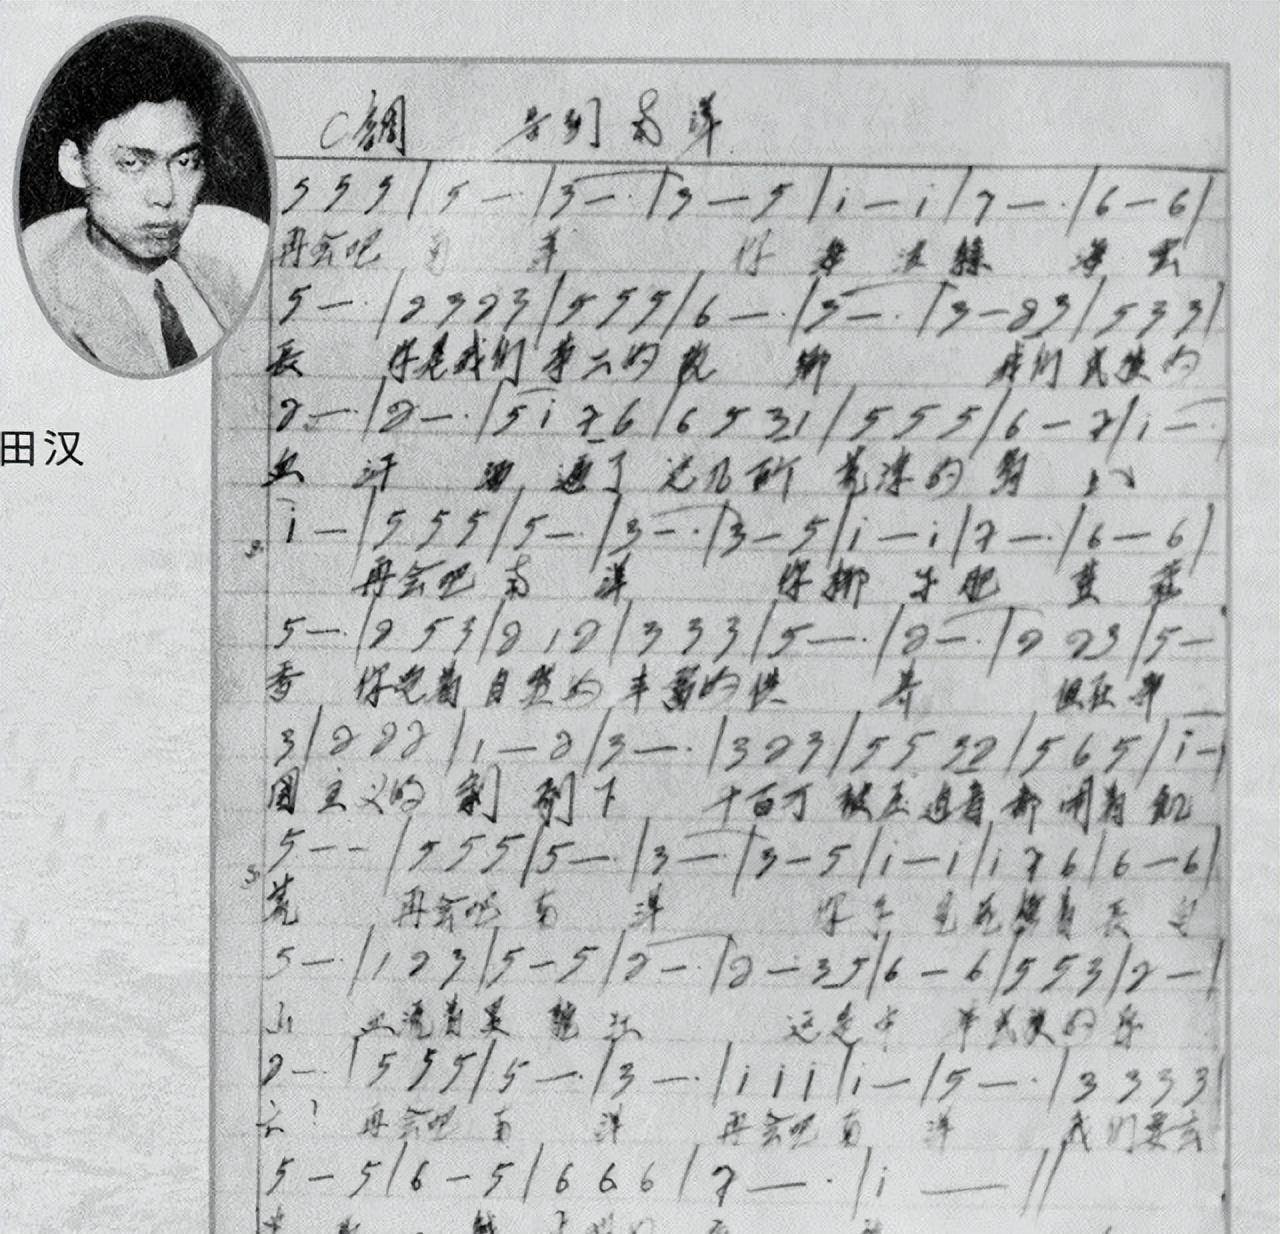 C調 告别南洋
5 5 5 | 5 — · | 3 — · | 3 — 5 | i — i | 7 — · | 6 — 6 |
再会吧 南 洋 你 海 波绿 海 云
5 — · | 2 3 2 3 | 5 5 5 | 6 — · | 3 — · | 3 — 2 3 | 5 3 3 |
長 你是我们 第二的 故 鄉 我们 民族的
田汉
2 — · | 2 — · | 5 i 7 6 | 6 5 3 1 | 5 5 5 | 6 — 7 | i — ·
血 汗 洒 遍了 这几百个 荒凉的 島 上
i — | 5 5 5 | 5 — · | 3 — · | 3 — 5 | i — i | 7 — · | 6 — 6 |
再会吧 南 洋 你椰 子肥 蕉
5 — · | 2 5 3 | 2 1 2 | 3 3 3 | 5 — · | 2 — · | 2 2 3 | 5 —
香 你 着 自然的 丰富的 供 养 但在 帝
3 | 2 2 2 | 1 — 2 | 3 — · | 3 2 3 | 5 5 3 2 | 5 6 5 | i —
国 主义的 剥 削下 千百万 被压迫者 都闹着 飢
5 — — | 5 5 5 | 5 — · | 3 — · | 3 — 5 | i — i | i 7 6 | 6 — 6 |
荒 再会吧 南 洋 你不 見 着 長 白
5 — · | 1 2 3 | 5 — 5 | 2 — · | 2 — 3 5 | 6 — 6 | 5 5 3 | 2 — |
山 血流着 黑 龍 江 这是中 华民族的 存
2 — · | 5 5 5 | 5 — · | 3 — · | i i i | i — | 5 — · | 3 3 3 3 |
亡! 再会吧 南 洋 再会吧 南 洋 我们要去
5 — 5 | 6 — 5 | 6 6 6 | 7 — · | i — ||